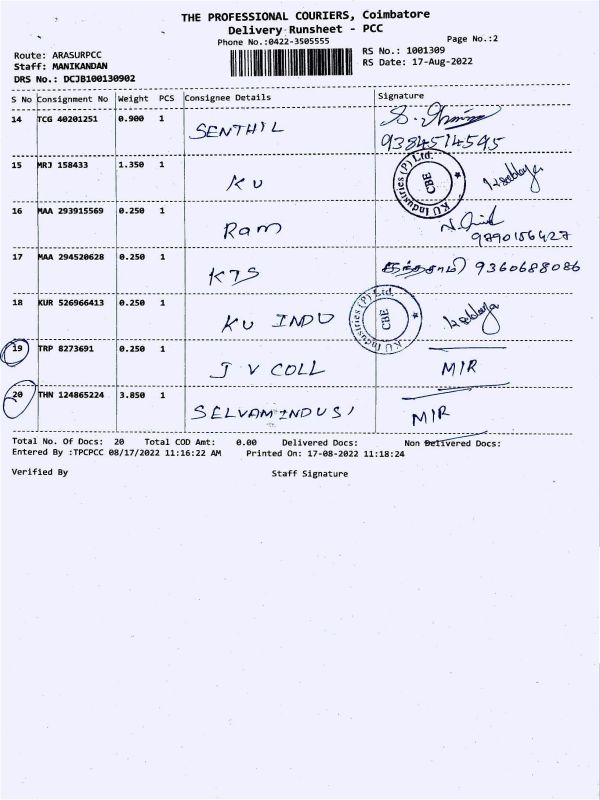 THE PROFESSIONAL COURIERS, Coimbatore
Delivery Runsheet - PCC
Phone No.:0422-3505555
Page No.:2
Route: ARASURPCC
RS No.: 1001309
Staff: MANIKANDAN
RS Date: 17-Aug-2022
DRS No.: DCJB100130902
S No Consignment No Weight PCS Consignee Details Signature
14 TCG 40201251 0.900 1 SENTHIL
9384514545
15 MRJ 158433 1.350 1 KU
KU Industries (P) Ltd. CBE
16 MAA 293915569 0.250 1 Ram
9890156427
17 MAA 294520628 0.250 1 KTS 9360688086
18 KUR 526966413 0.250 1 KU INDU
KU Industries (P) Ltd. CBE
19 TRP 8273691 0.250 1 J V COLL MIR
20 THN 124865224 3.850 1 SELVAM INDUSI MIR
Total No. Of Docs: 20 Total COD Amt: 0.00 Delivered Docs: Non Delivered Docs:
Entered By :TPCPCC 08/17/2022 11:16:22 AM Printed On: 17-08-2022 11:18:24
Verified By Staff Signature